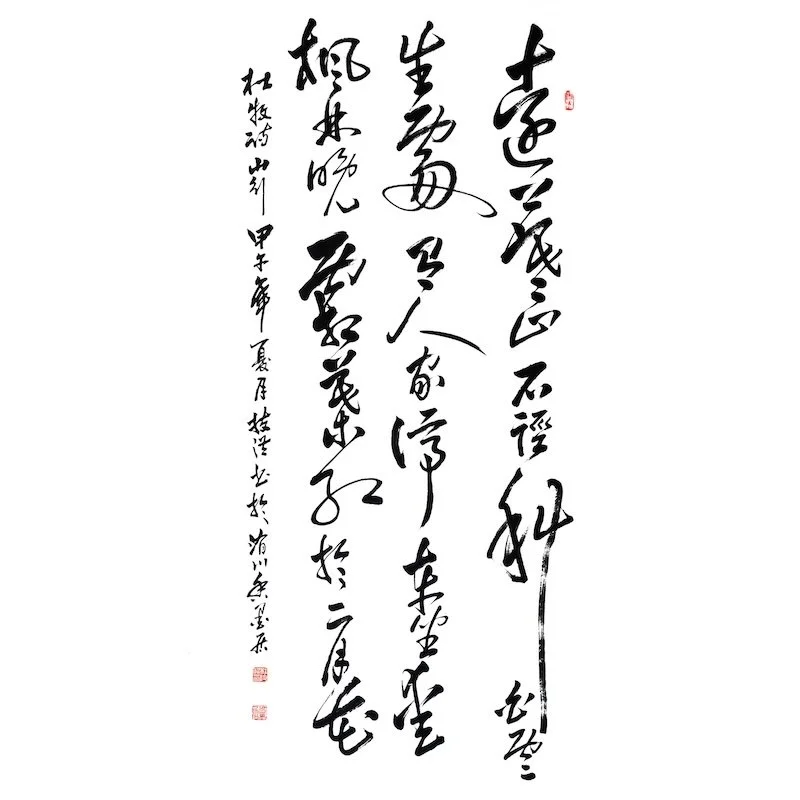 遠上寒山石徑斜白雲
生處有人家停車坐愛
楓林晚霜葉紅於二月花
杜牧詩山行甲午年夏月书於川墨居